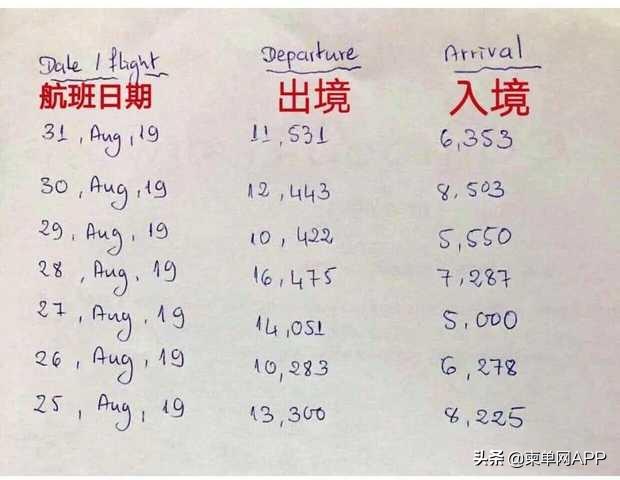 Date / flight Departure Arrival
航班日期 出境 入境
31, Aug, 19 11,531 6,353
30, Aug, 19 12,443 8,503
29, Aug, 19 10,422 5,550
28, Aug, 19 16,475 7,287
27, Aug, 19 14,051 5,000
26, Aug, 19 10,283 6,278
25, Aug, 19 13,300 8,225
头条 @柬单网APP